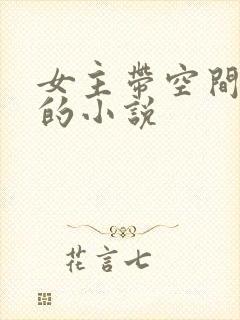 女主帶空間
的小說
花言七